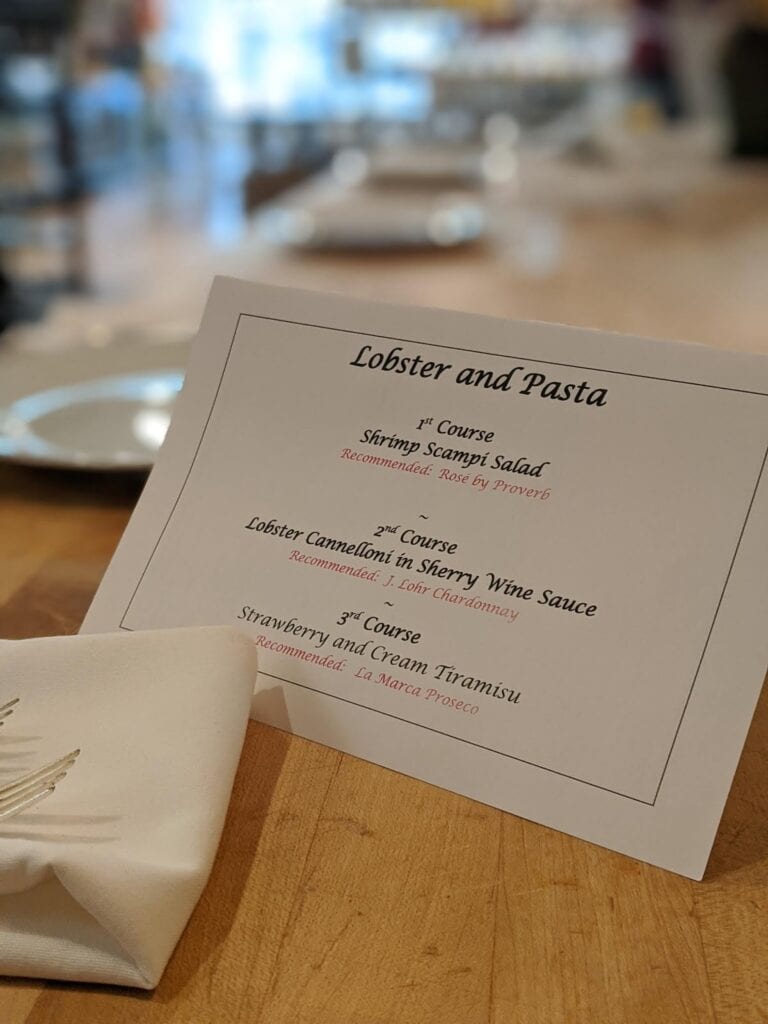 Lobster and Pasta
1st Course
Shrimp Scampi Salad
Recommended: Rosé by Proverb
~
2nd Course
Lobster Cannelloni in Sherry Wine Sauce
Recommended: J. Lohr Chardonnay
~
3rd Course
Strawberry and Cream Tiramisu
Recommended: La Marca Proseco